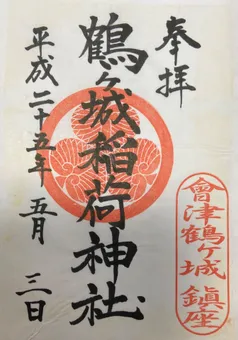 奉拝
會津鶴ヶ城 鎮座
鶴ヶ城稲荷神社
平成二十五年 五月 三日